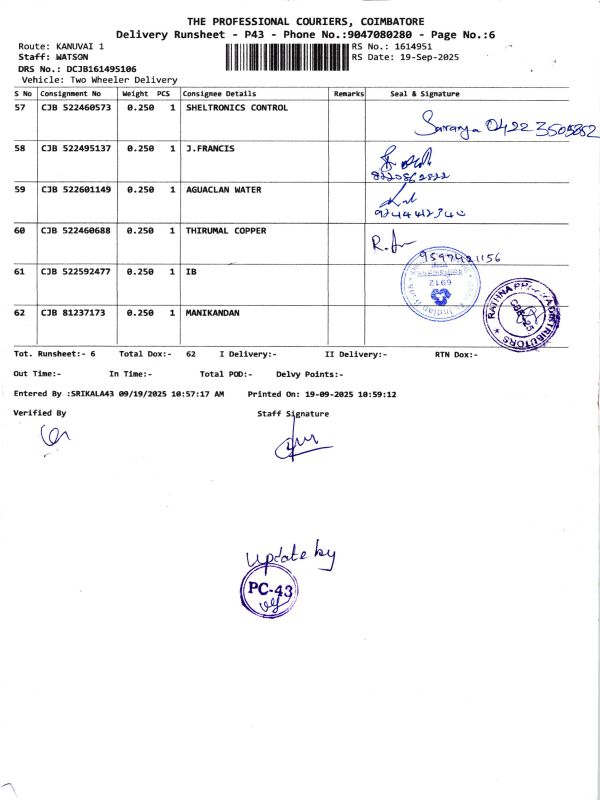 THE PROFESSIONAL COURIERS, COIMBATORE
Delivery Runsheet - P43 - Phone No.:9047080280 - Page No.:6
Route: KANUVAI 1
RS No.: 1614951
Staff: WATSON
RS Date: 19-Sep-2025
DRS No.: DCJB161495106
Vehicle: Two Wheeler Delivery
S No Consignment No Weight PCS Consignee Details Remarks Seal & Signature
57 CJB 522460573 0.250 1 SHELTRONICS CONTROL
Saranya 0422 3505052
58 CJB 522495137 0.250 1 J.FRANCIS
59 CJB 522601149 0.250 1 AGUACLAN WATER
60 CJB 522460688 0.250 1 THIRUMAL COPPER
9597421156
61 CJB 522592477 0.250 1 IB
6912
62 CJB 81237173 0.250 1 MANIKANDAN
DISTRIBUTORS
Tot. Runsheet:- 6 Total Dox:- 62 I Delivery:- II Delivery:- RTN Dox:-
Out Time:- In Time:- Total POD:- Delvy Points:-
Entered By :SRIKALA43 09/19/2025 10:57:17 AM Printed On: 19-09-2025 10:59:12
Verified By Staff Signature
Update by
PC-43